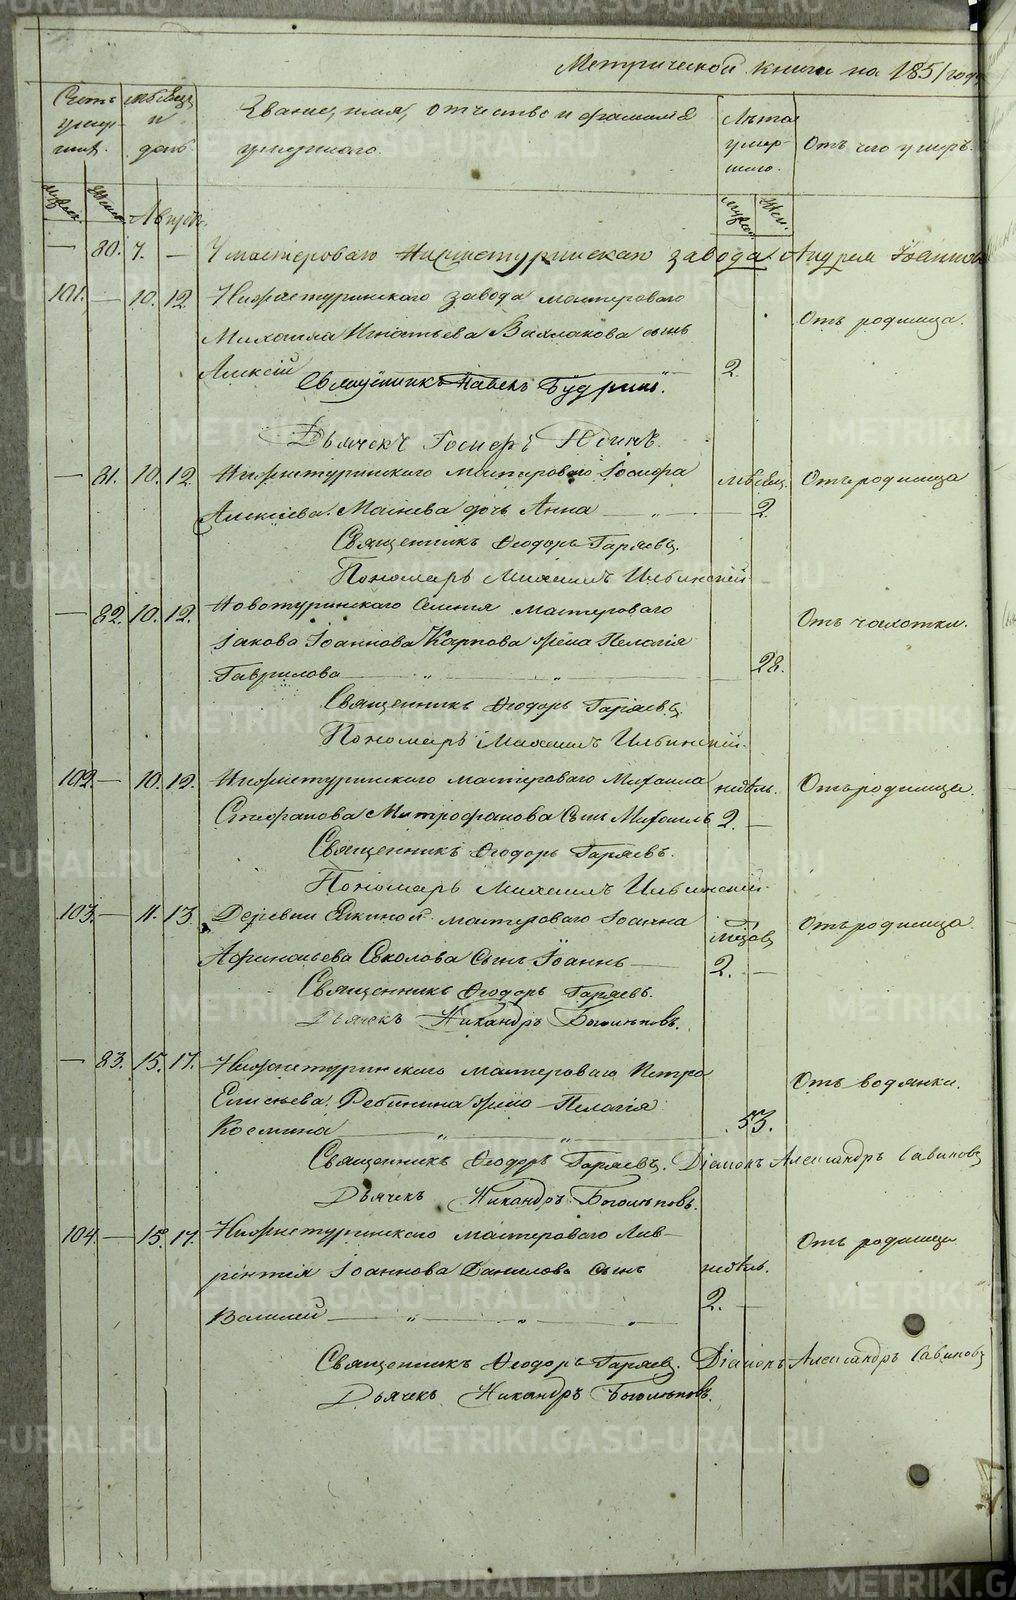 Метрической книги на 1851 года
Счетъ умершихъ.
мѣсяцъ и день.
Званіе, имя, отчество и фамилія умершаго.
Лѣта умершаго.
Отъ чего умеръ.
Мужеск. Женск.
Августъ.
Мужеск. Жен.
— 80. 7. — У мастероваго Нижнетуринскаго завода Андрея Іоаннова
101. — 10. 12. Нижнетуринскаго завода мастероваго
Отъ родимца.
Михаила Игнатьева Вахлакова сынъ
Алексій 2.
Священникъ Павелъ Будринъ.
Дьячекъ Іосифъ Юдинъ.
— 81. 10. 12. Нижнетуринскаго мастероваго Іосифа мѣсяц. Отъ родимца
Алексѣева дочь Анна 2.
Священникъ Ѳеодоръ Гаряевъ.
Пономарь Михаилъ Ильинскій
— 82. 10. 12. Новотуринскаго селенія мастероваго
Отъ чахотки.
Іакова Іоаннова Карпова жена Пелагія
Гаврилова 28.
Священникъ Ѳеодоръ Гаряевъ
Пономарь Михаилъ Ильинскій.
102. — 10. 12. Нижнетуринскаго мастероваго Михаила недѣль. Отъ родимца.
Стефанова Митрофанова сынъ Михаилъ 2. —
Священникъ Ѳеодоръ Гаряевъ.
Пономарь Михаилъ Ильинскій.
103. — 11. 13. Деревни Елкиной мастероваго Іоанна
мѣсяц
Отъ родимца
Афанасьева Соколова сынъ Іоаннъ — 2. —
Священникъ Ѳеодоръ Гаряевъ.
Дьячекъ Никандръ Боголѣповъ.
— 83. 15. 17. Нижнетуринскаго мастероваго Петра
Отъ водянки.
Елисѣева жена Пелагія
Космина 53.
Священникъ Ѳеодоръ Гаряевъ. Діаконъ Александръ Савиновъ
Дьячекъ Никандръ Боголѣповъ.
104. — 15. 17. Нижнетуринскаго мастероваго Лав-
Отъ родимца
рентія Іоаннова Данилова сынъ недѣль.
Василій 2. —
Священникъ Ѳеодоръ Гаряевъ. Діаконъ Александръ Савиновъ
Дьячекъ Никандръ Боголѣповъ.
METRIKI.GASO-URAL.RU